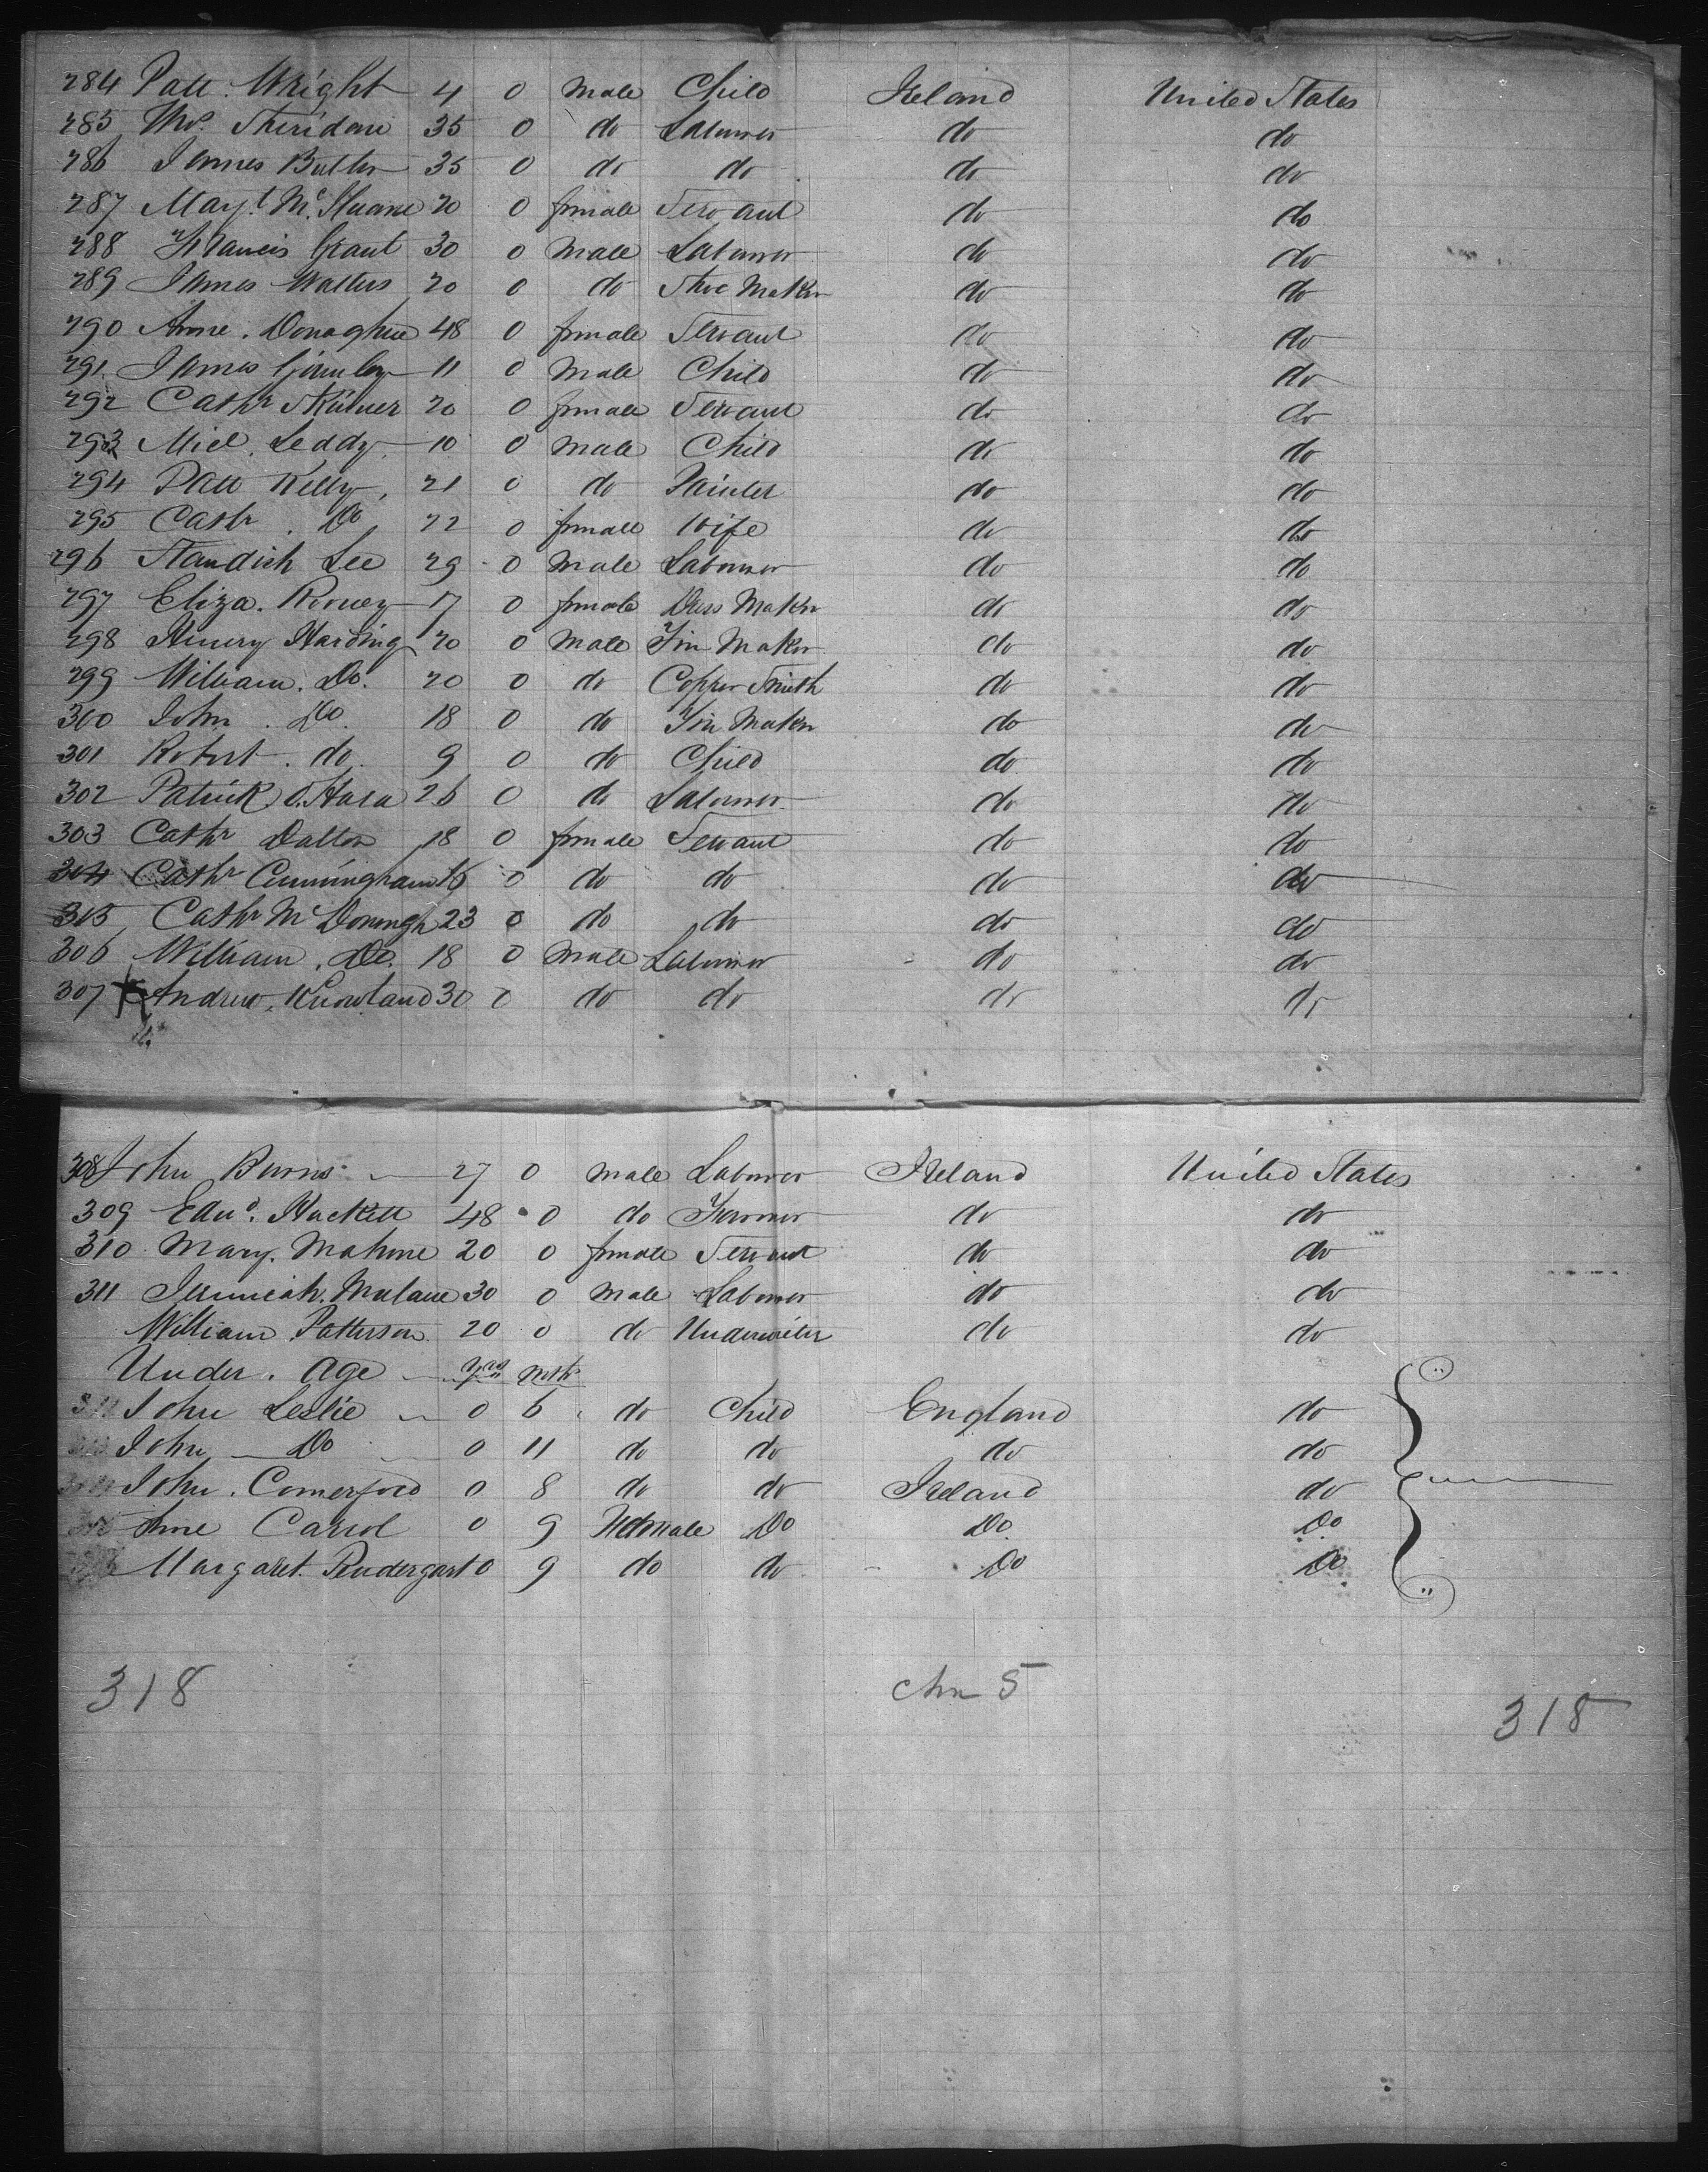 284 Patt. Wright 4 0 male Child Ireland United States
285 Thos. Sheridan 35 0 do Labourer do do
286 James Butler 35 0 do do do do
287 Mayt. McSluane 20 0 female Servant do do
288 Francis Grant 30 0 male Labourer do do
289 James Walters 20 0 do Shoe Maker do do
290 Anne. Donaghue 48 0 female Servant do do
291 James Gormley 11 0 Male Child do do
292 Cathr Skivner 20 0 female Servant do do
293 Micl. Leddy 10 0 male Child do do
294 Patt Kelly 21 0 do Painter do do
295 Cathr. Do 22 0 female Wife do do
296 Standish Lee 29 0 Male Labourer do do
297 Eliza. Rooney 17 0 female Dress Maker do do
298 Henry Harding 20 0 Male Tin Maker do do
299 William. Do. 20 0 do Copper Smith do do
300 John. Do. 18 0 do Tin Maker do do
301 Robert. do. 9 0 do Child do do
302 Patrick O.Hara 26 0 do Labourer do do
303 Cathr Dalton 18 0 female Servant do do
304 Cathr Cunningham 16 0 do do do do
305 Cathr McDoningh 23 0 do do do do
306 William. Do. 18 0 Male Labourer do do
307 Andrew. Knowland 30 0 do do do do
308 John Burns 27 0 male Labourer Ireland United States
309 Edwd. Hackett 48 0 do Farmer do do
310 Mary. Mahone 20 0 female Servant do do
311 Jerimiah. Mulane 30 0 Male Labourer do do
William Patterson 20 0 do Underwriter do do
Under. Age Yrs Mths
John Leslie 0 6 do Child England do
John Do 0 11 do do do do
John. Comerford 0 8 do do Ireland do
Anne Carrol 0 9 Female Do Do Do
Margaret. Pendergast 0 9 do do Do Do
318 5
318